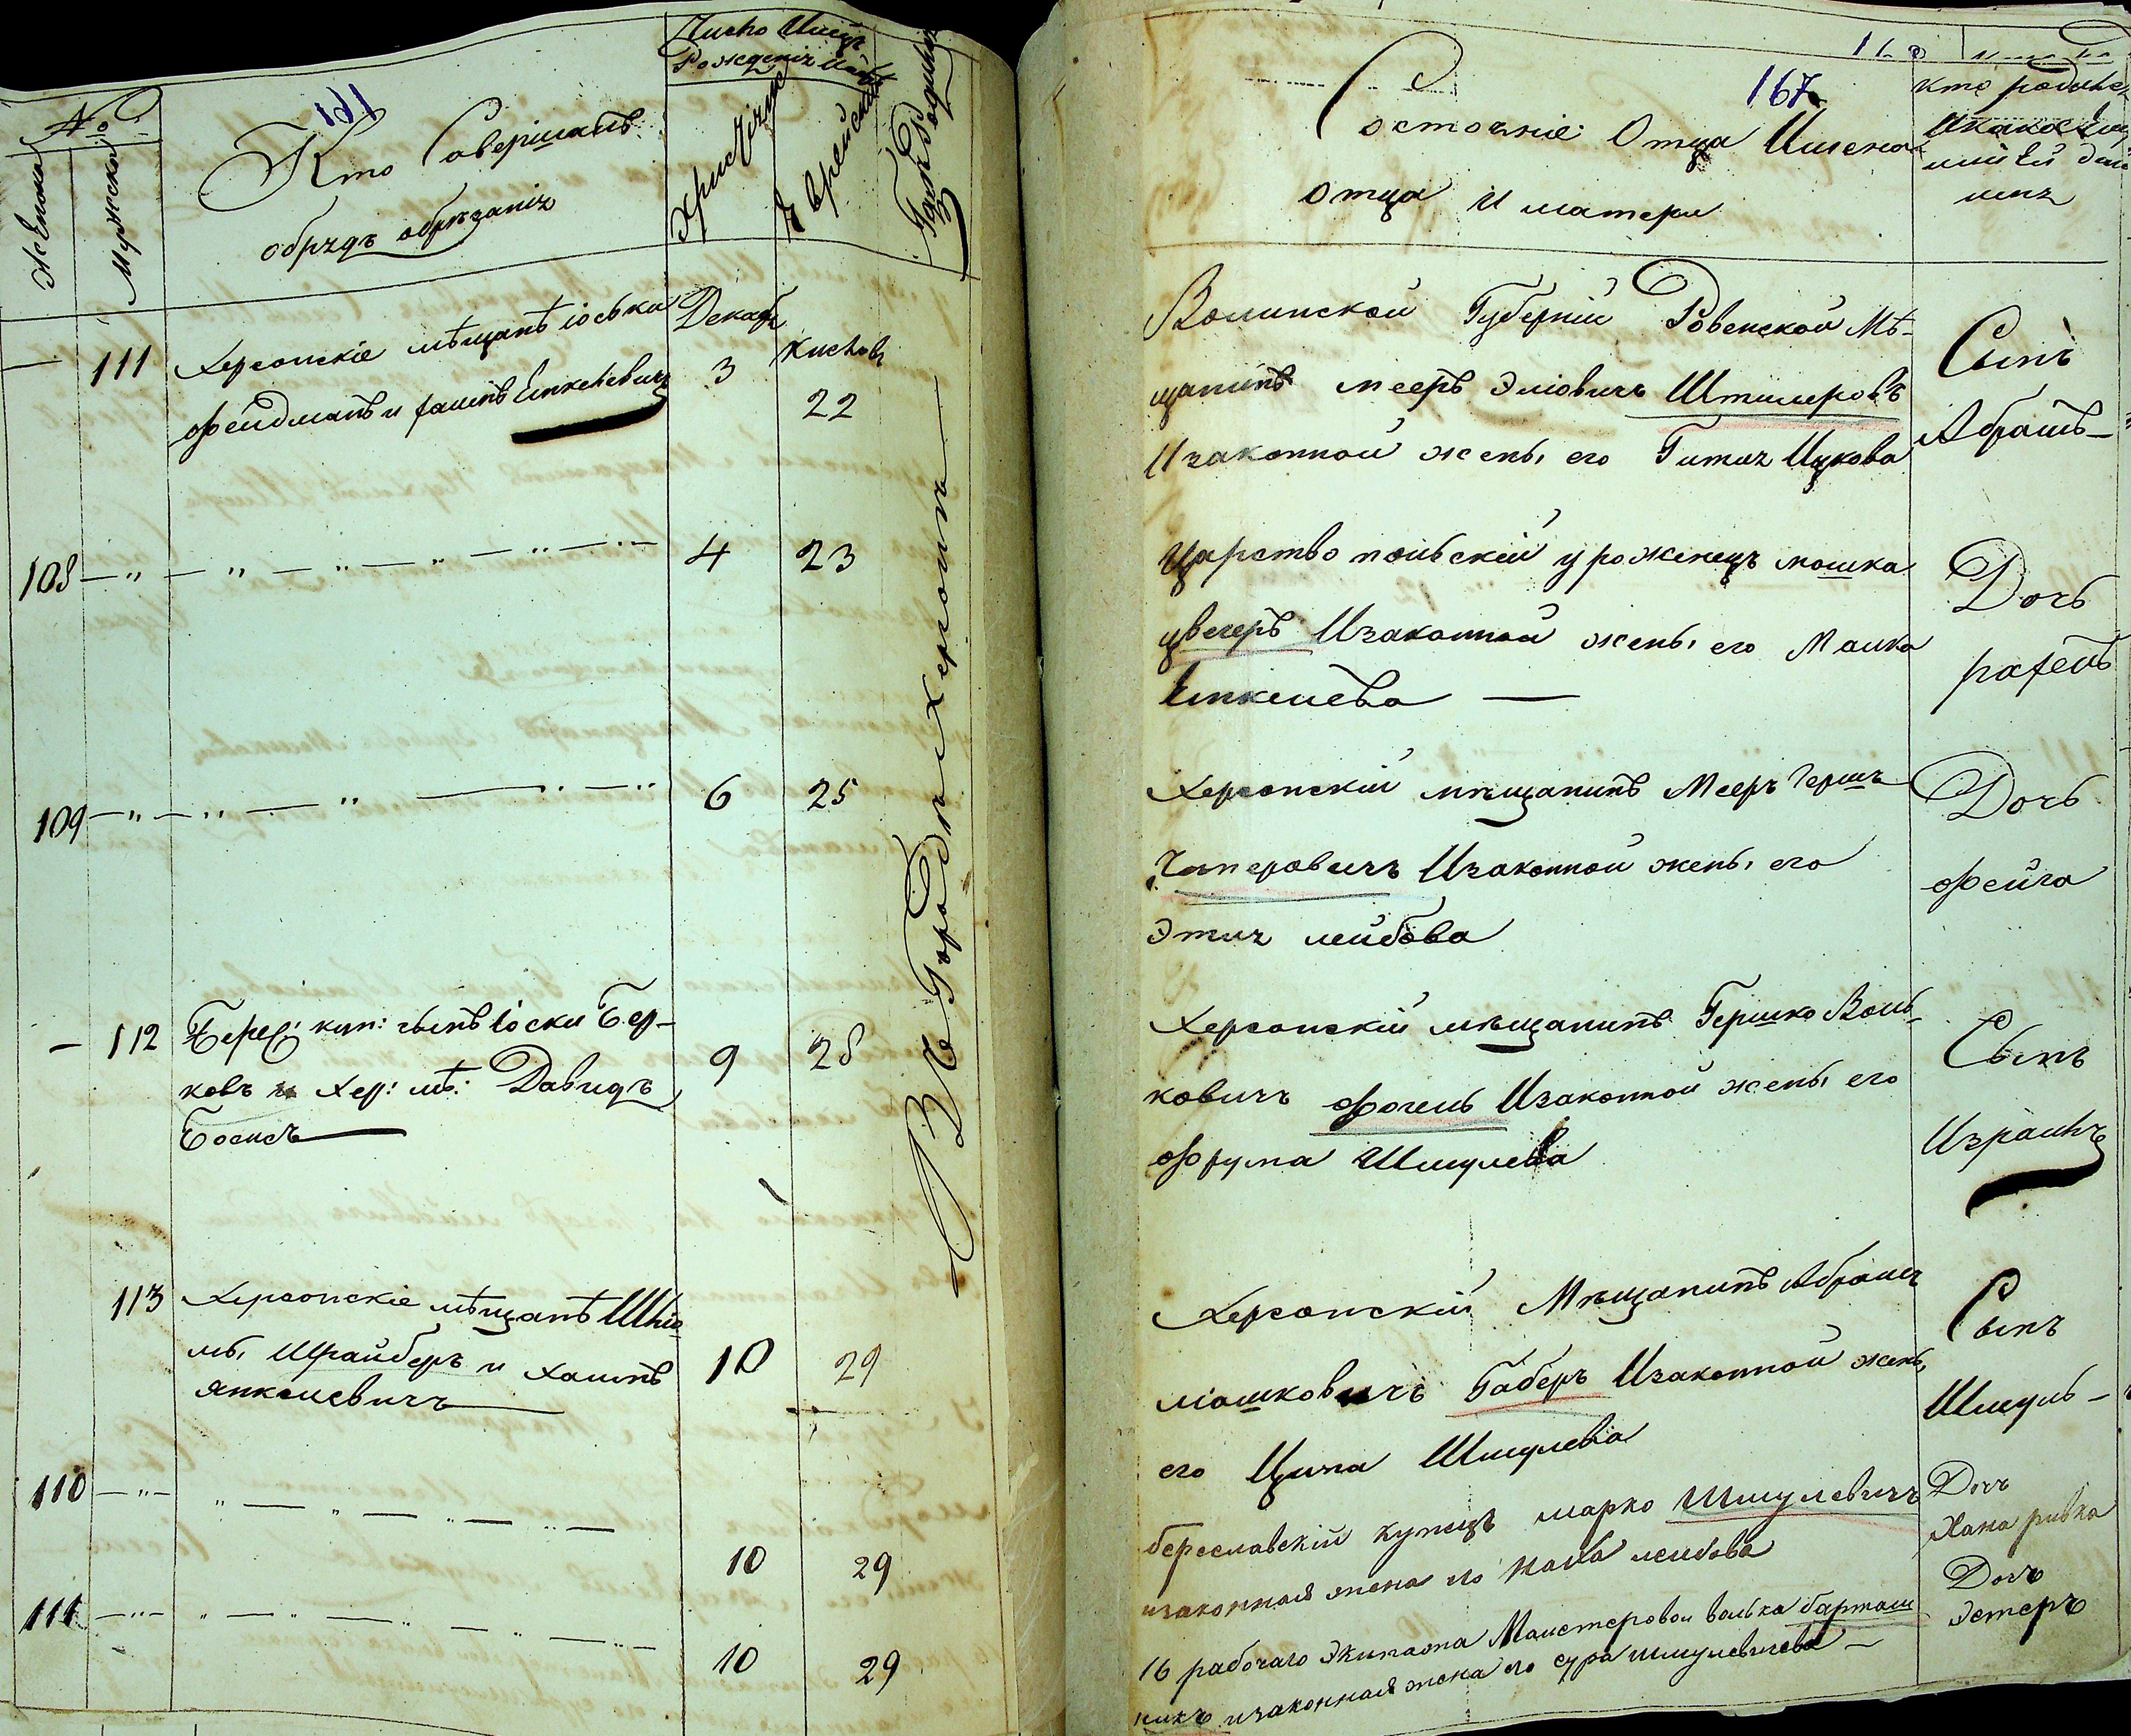 №
Женска
Мужска
161
Кто Совершалъ
обрядъ обрѣзанія
Число Мѣсяцъ
Рожденія
Христіянс
Еврейскій
Гдѣ Родился
111
Херсонскіе мѣщанѣ Іоська
Фейдманъ и Хаимъ Енкелевичъ
Декабр
3
Кислевъ
22
108 — " — " — " — " — " — "
4
23
109 — " — " — " — " — "
6
25
— 112
Берес: куп: сынъ Іоски Бер-
ковъ и Хер: мѣ: Давидъ
Боемъ
9
28
113
Херсонскіе мѣщанѣ Шліо
мы Шрайберъ и Хаимъ
Янкелевичъ
10
29
110 — " — " — " — " — " —
10
29
111 — " — " — " — " — " —
10
29
Въ Городѣ Херсонѣ
167
Состояніе Отца Имена
отца и матери
кто родился
Волинской Губерніи Ровенской Мѣ-
щанинъ Мееръ Эліовичъ Штилеровъ
И законной жены его Гитля Ицкова
Сынъ
Абрамъ —
Царство польскій уроженецъ мошка
цвегеръ И законной жены его Малка
Енкелева —
Дочь
рахель
Херсонскій мѣщанинъ Мееръ Гершъ
Гитеровичъ И законной жены его
Этля лейбова
Дочь
Фейга
Херсонскій мѣщанинъ Гершко Воль-
ковичъ Фогель И законной жены его
Фрума Шмулева
Сынъ
Израиль
Херсонскій Мѣщанинъ Абрамъ
мошковичъ Габеръ И законной жены
его Ципа Шмулева
Сынъ
Шмуль —
береславскій купецъ марко Шмулевичъ
изаконная жена его Хана лейбова
Дочь
Хана ривка
16 рабочаго Экипажа Мастеровои волька барташ
никъ изаконная жена его сура шмулевичева —
Дочь
Эстеръ